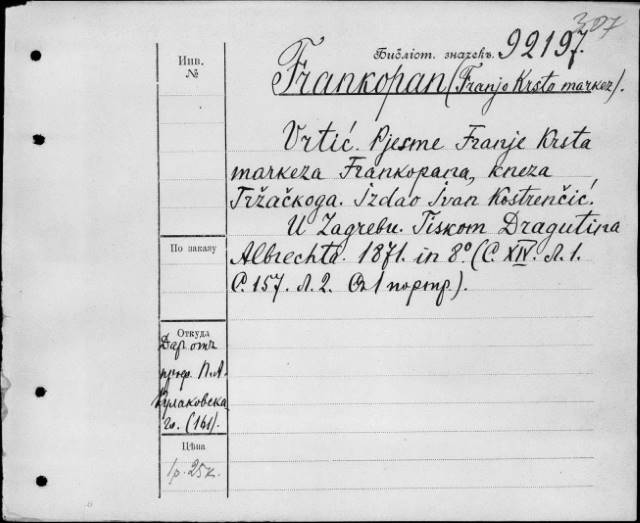 307
Библіот. значекъ. 92197.
Инв. №
Frankopan (Franjo Krsto markez).
Vrtić. Pjesme Franje Krsta
markeza Frankopana, kneza
Tržačkoga. Izdao Ivan Kostrenčić.
U Zagrebu. Tiskom Dragutina
Albrechta. 1871. in 8º. (С. XIV. Л. 1.
С. 157. Л. 2. Съ 1 портр.).
По заказу
Откуда
Даръ отъ
проф. П. А.
Кулаковска
го. (161).
Цѣна
1р. 25к.